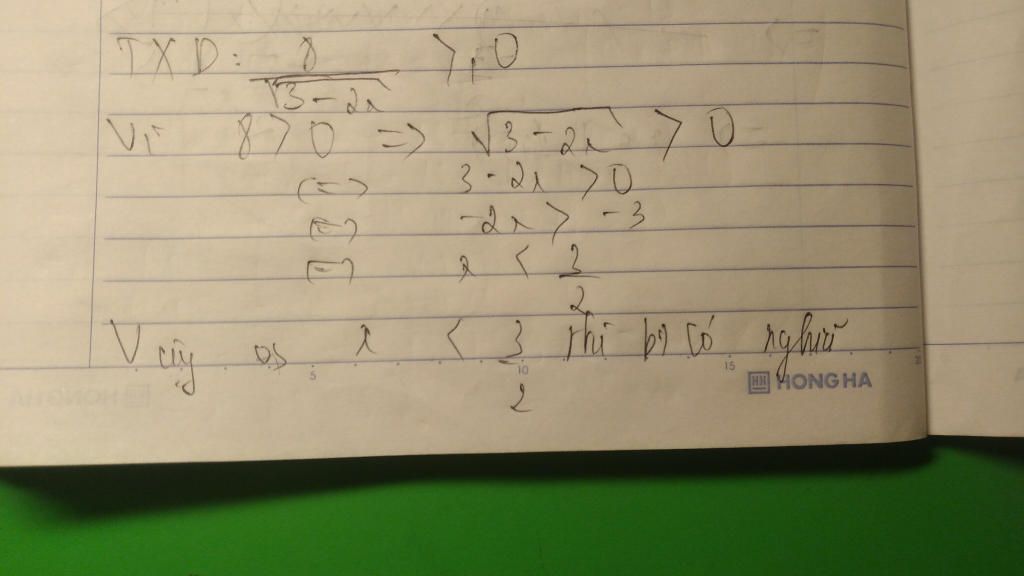 TXD: 8/√(3-2x) ≥ 0
Vì 8 > 0 => √(3-2x) > 0
<=> 3-2x > 0
<=> -2x > -3
<=> x < 3/2
Vậy x < 3/2 thì bt có nghĩa
5 10 15
HONG HA